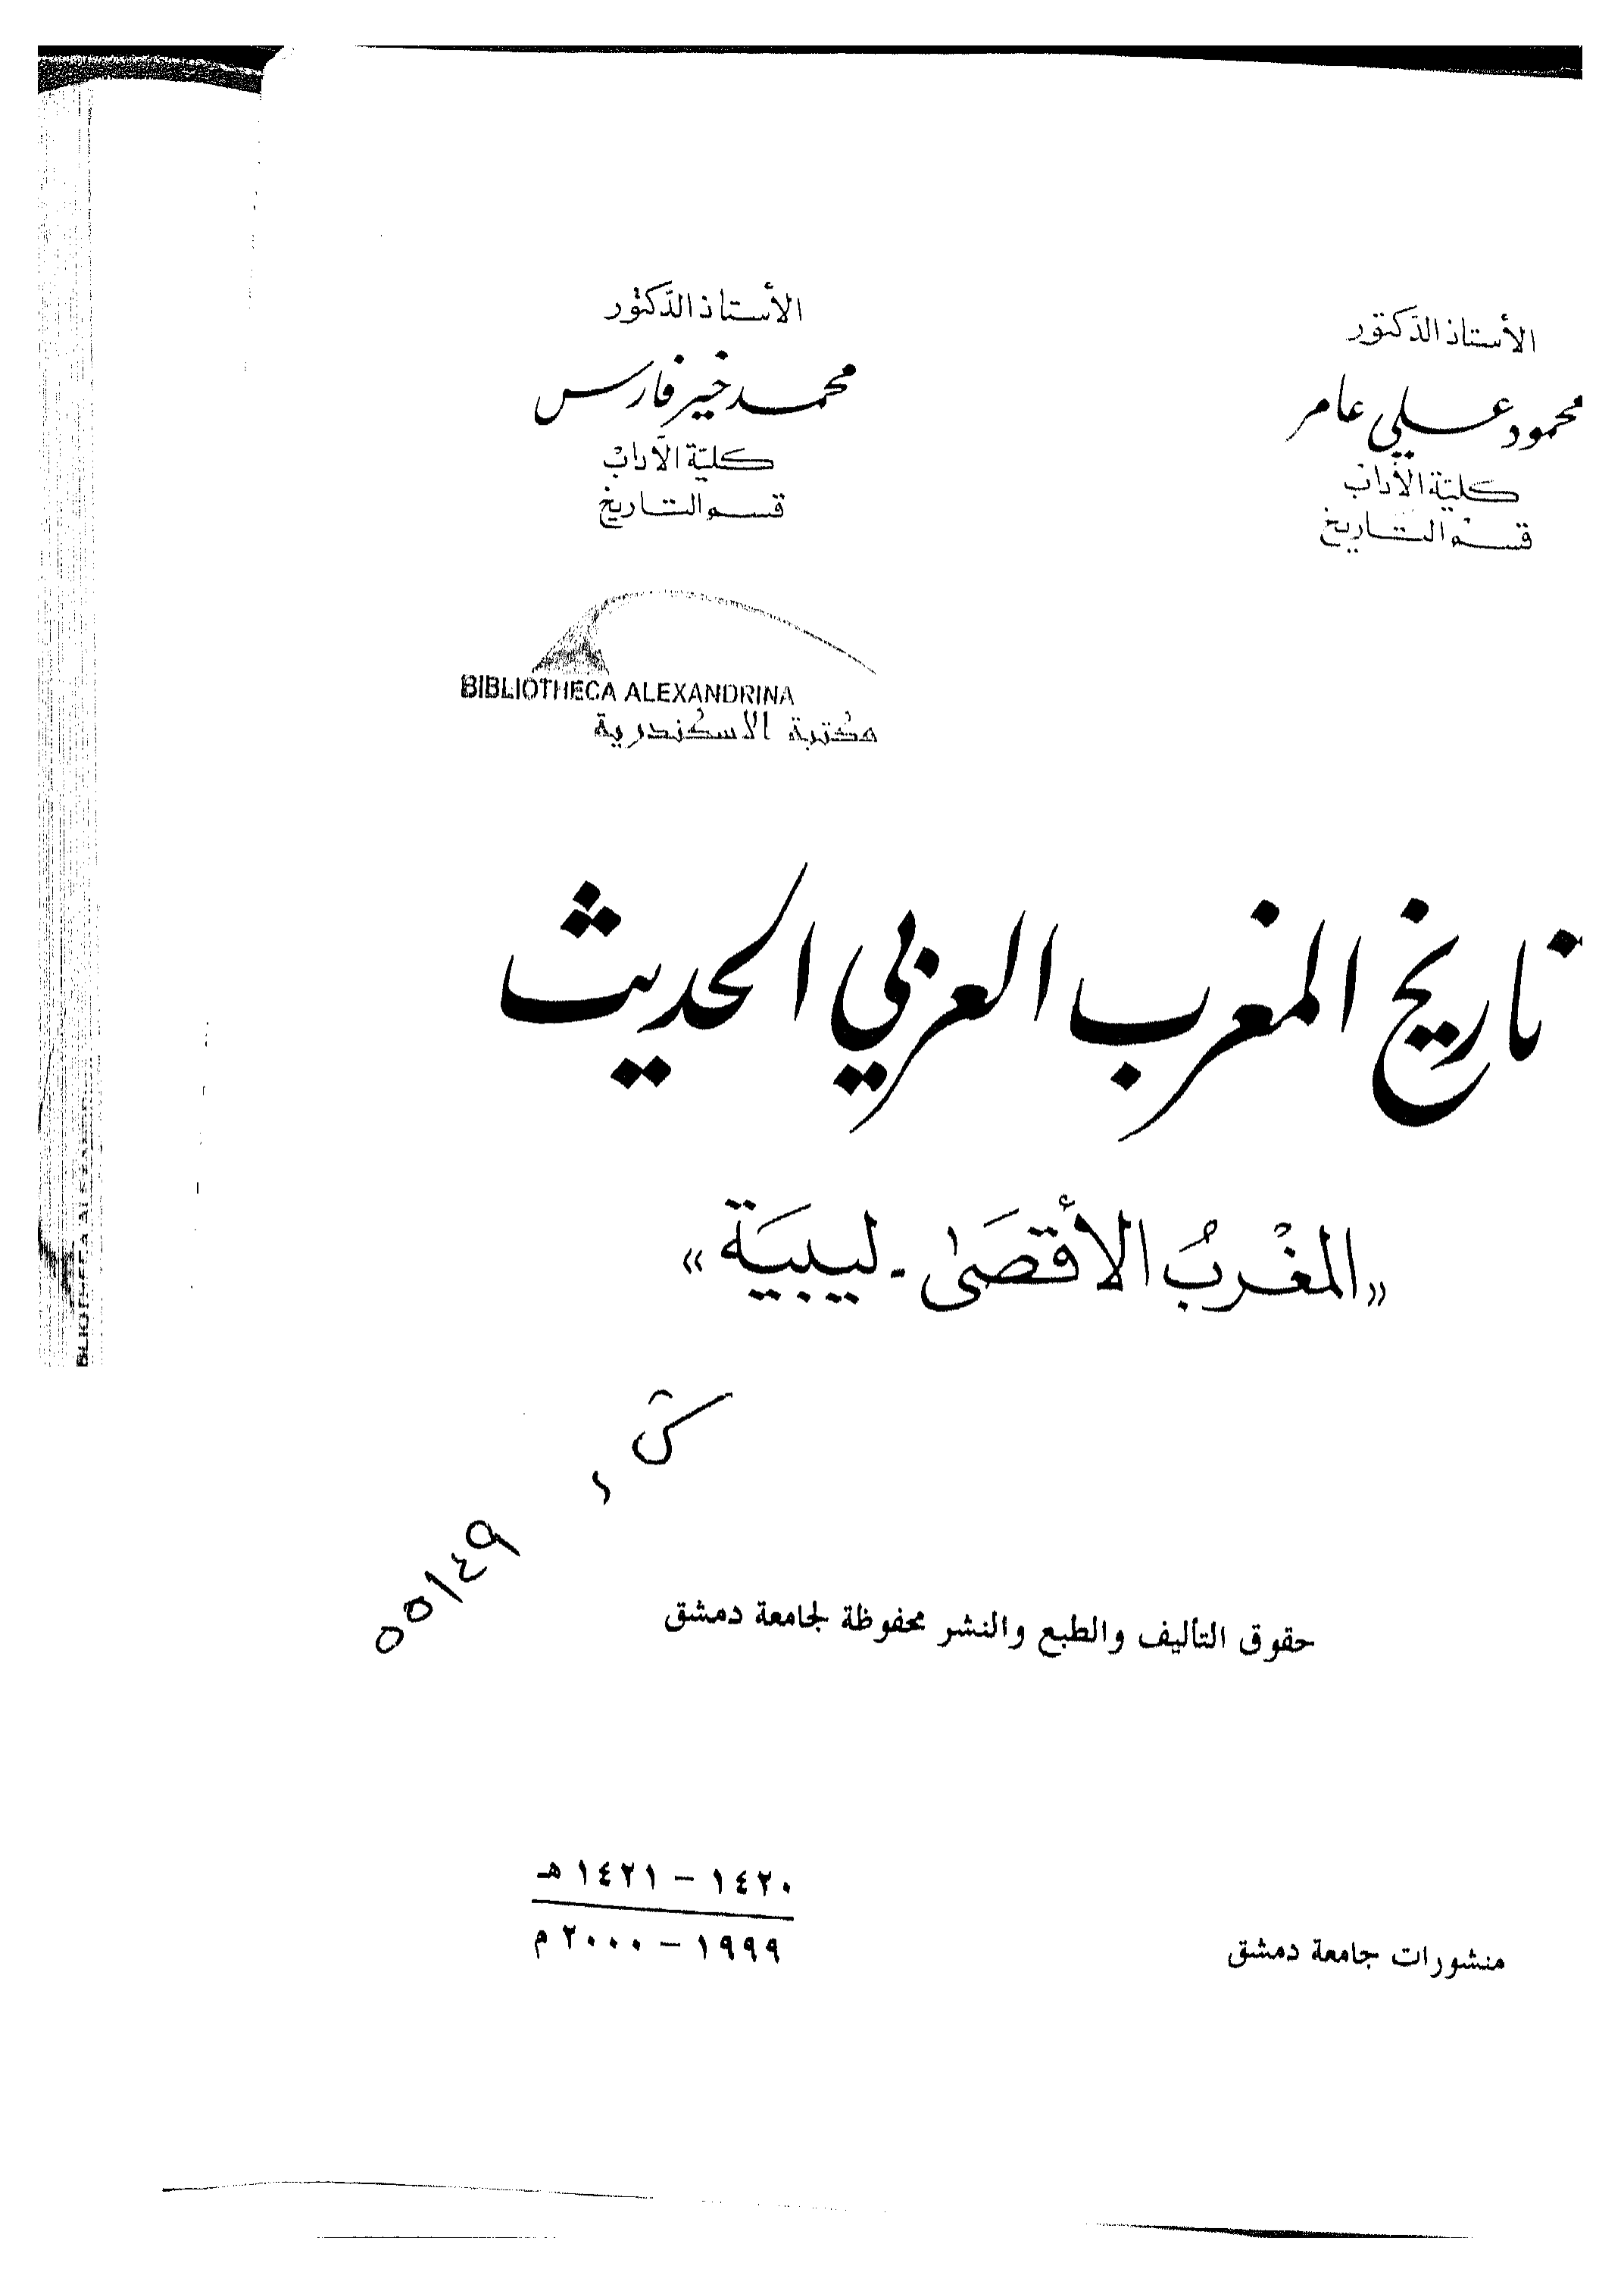 الأستاذ الدكتور
محمود علي عامر
كلية الآداب
قسم التاريخ
الأستاذ الدكتور
محمد خير فارس
كلية الآداب
قسم التاريخ
BIBLIOTHECA ALEXANDRINA
مكتبة الاسكندرية
تاريخ المغرب العربي الحديث
«المغْربُ الأقصَى - ليبيَة»
٥٥١٤٩
حقوق التأليف والطبع والنشر محفوظة لجامعة دمشق
١٤٢٠ – ١٤٢١ هـ
١٩٩٩ – ٢٠٠٠ م
منشورات جامعة دمشق